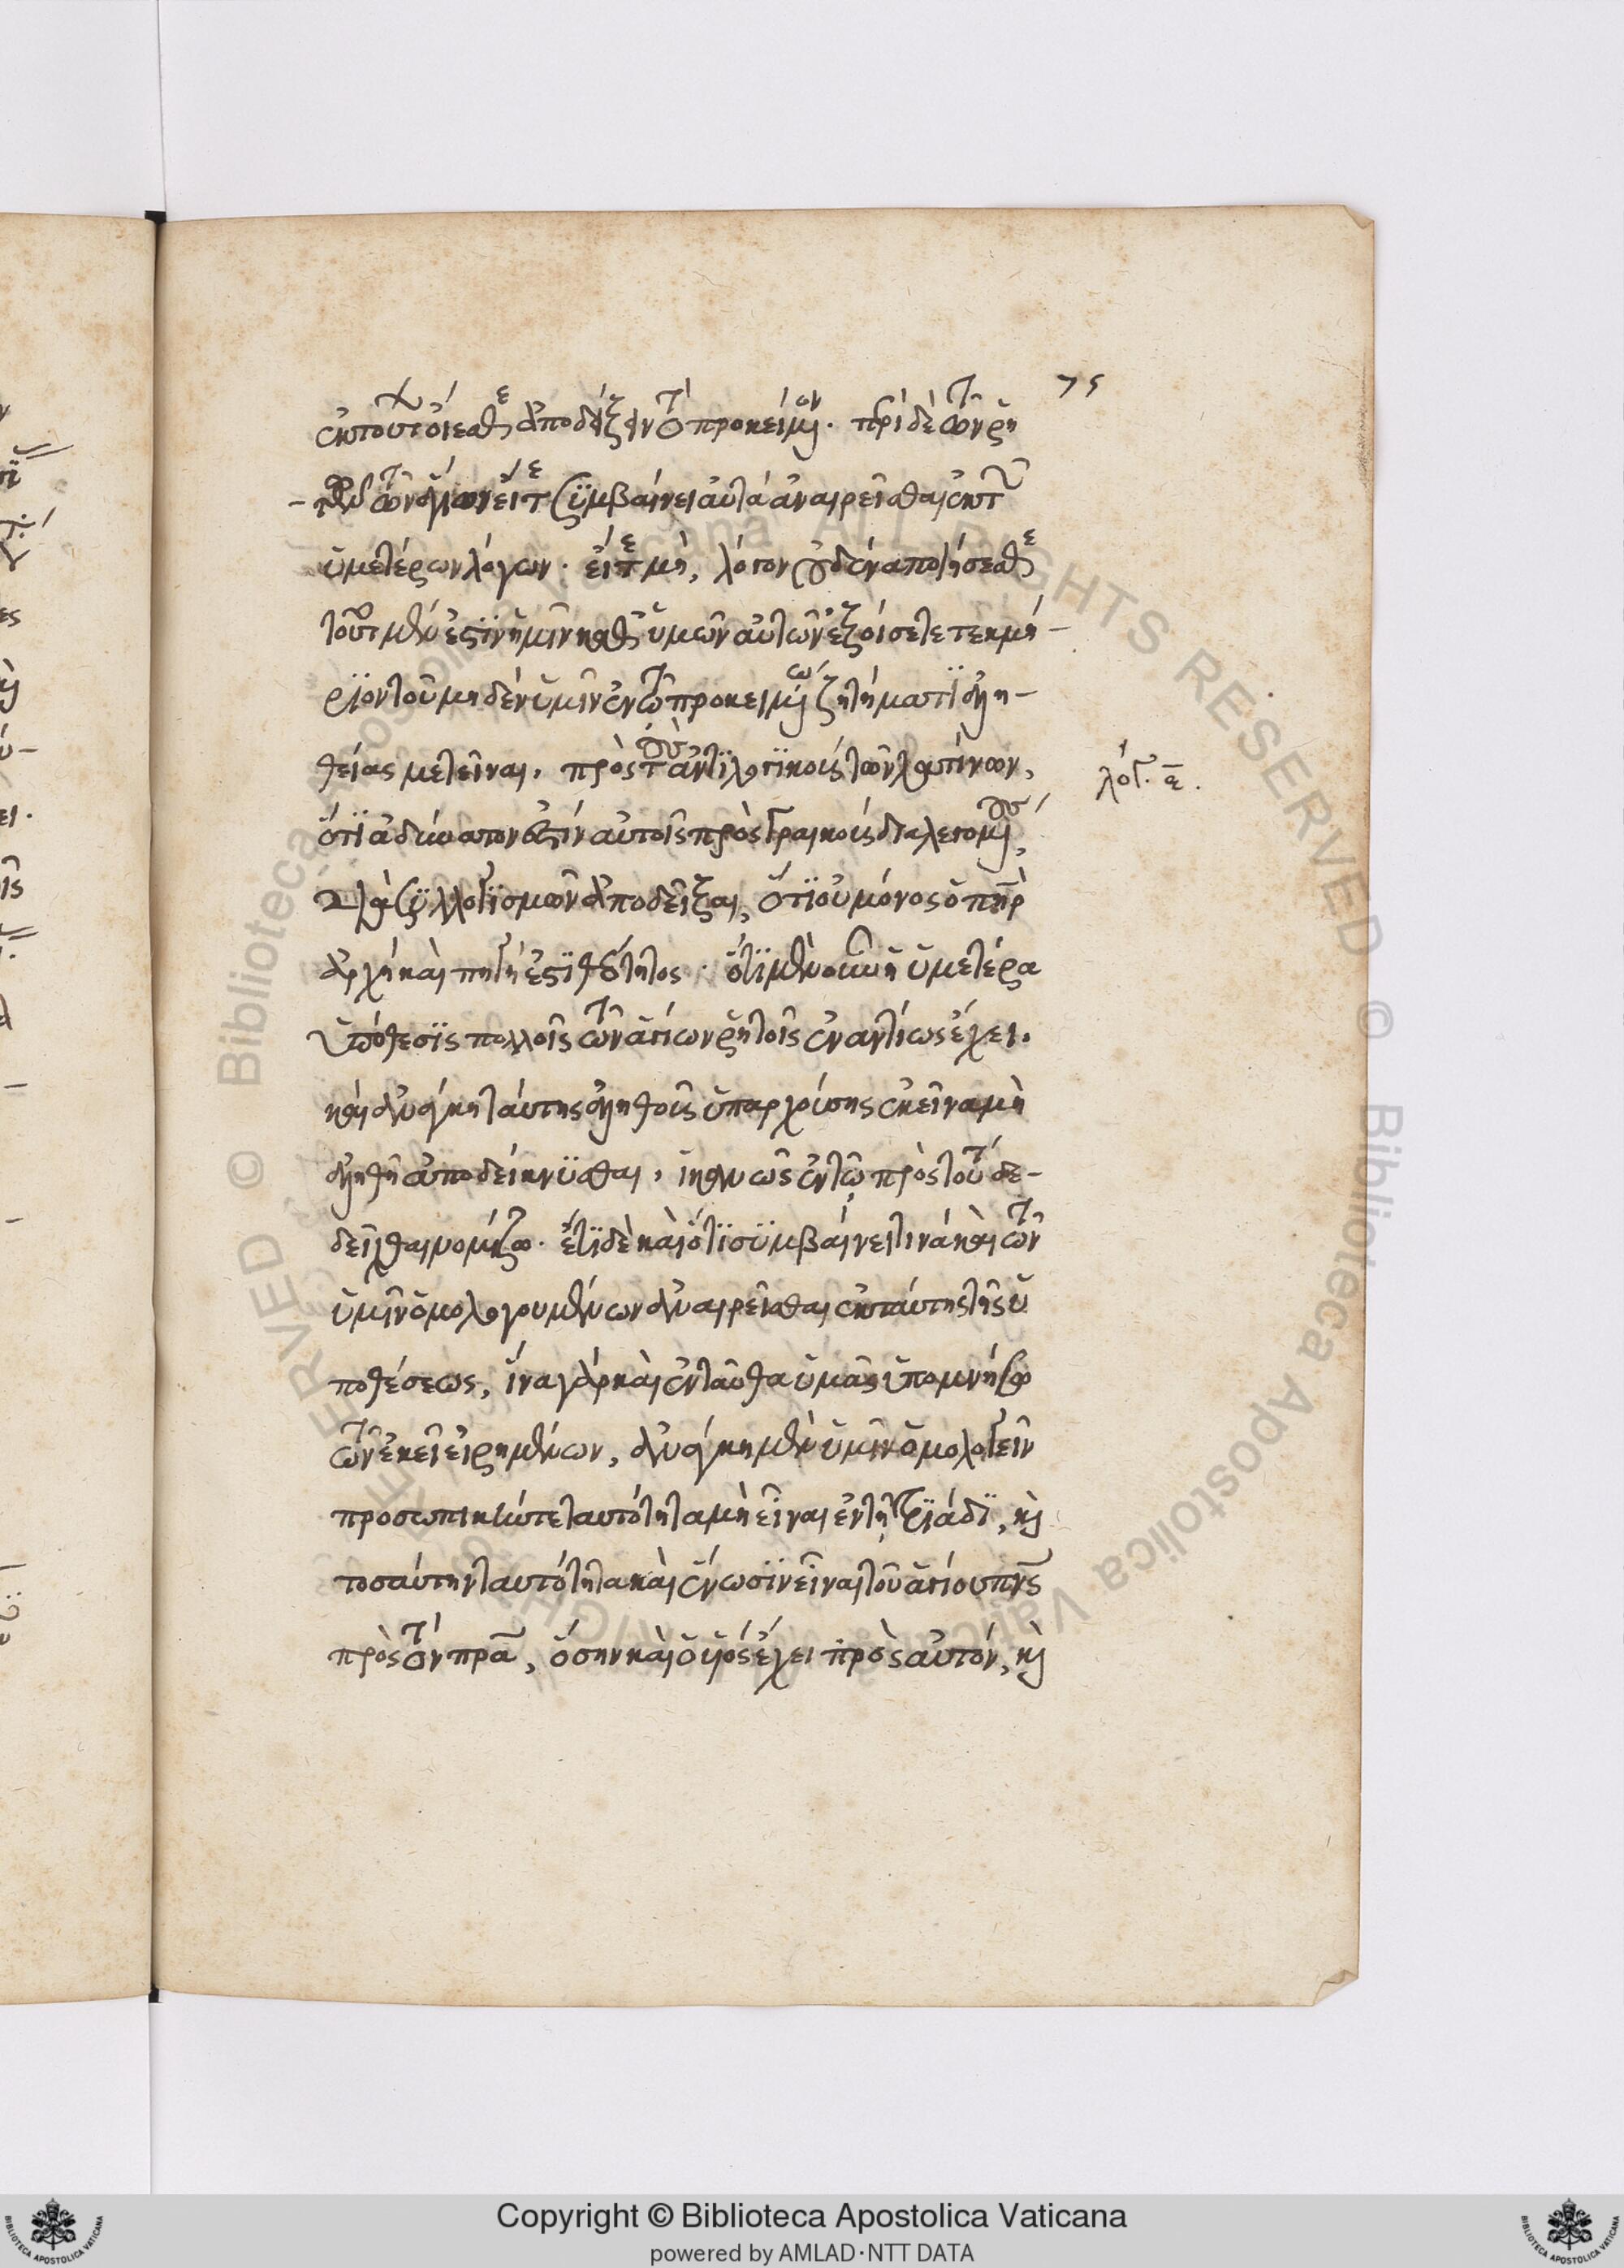 75
ἐκ τούτου οἴεσθε ἀποδεῖξαι τὸ προκείμενον. περὶ δὲ τῶν ῥη
τῶν τῶν ἁγίων εἴτε συμβαίνει αὐτὰ ἀναιρεῖσθαι ἐκ τῶν
ὑμετέρων λόγων. εἴτε μὴ, λόγον οὐδένα ποιήσεσθε
τοῦτο μὲν ἔστιν ἡμῖν καθ' ὑμῶν αὐτῶν ἐξοίσετε τεκμή-
ριον τοῦ μηδὲν ὑμῖν ἐν τῷ προκειμένῳ ζητήματι ἀλη-
θείας μετεῖναι. πρὸς τοὺς ἀντιλογικοὺς τῶν λατίνων,
λόγ. α.
ὅτι ἀδύνατον ἐστὶν αὐτοῖς πρὸς Γραικοὺς διαλεγομένους,
διὰ συλλογισμῶν ἀποδεῖξαι, ὅτι οὐ μόνος ὁ πὴρ
ἀρχὴ καὶ πηγή ἐστι θεότητος. ὅτι μὲν οὖν ἡ ὑμετέρα
ὑπόθεσις πολλοῖς τῶν ἁγίων ῥητοῖς ἐναντίως ἔχει.
καὶ ἀνάγκη ταύτης ἀληθοῦς ὑπαρχούσης ἐκεῖνα μὴ
ἀληθῆ ἀποδείκνυσθαι, ἱκανῶς ἐν τῷ πρὸ τούτου δε-
δεῖχθαι νομίζω. ἔτι δὲ καὶ ὅτι συμβαίνει τινὰ καὶ τῶν
ὑμῖν ὁμολογουμένων ἀναιρεῖσθαι ἐκ ταύτης τῆς ὑ
ποθέσεως, ἵνα γὰρ καὶ ἐνταῦθα ὑμᾶς ὑπομνήσω
τῶν ἐκεῖ εἰρημένων, ἀνάγκη μὲν ὑμῖν ὁμολογεῖν
προσωπικήν τε ταυτότητα μὴ εἶναι ἐν τῇ τριάδι, καὶ
τοσαύτην ταυτότητα καὶ ἕνωσιν εἶναι τοῦ ἁγίου πνς
πρὸς τὸν πρα, ὅσην καὶ ὁ υἱὸς ἔχει πρὸς αὐτόν, καὶ
Copyright © Biblioteca Apostolica Vaticana
powered by AMLAD·NTT DATA